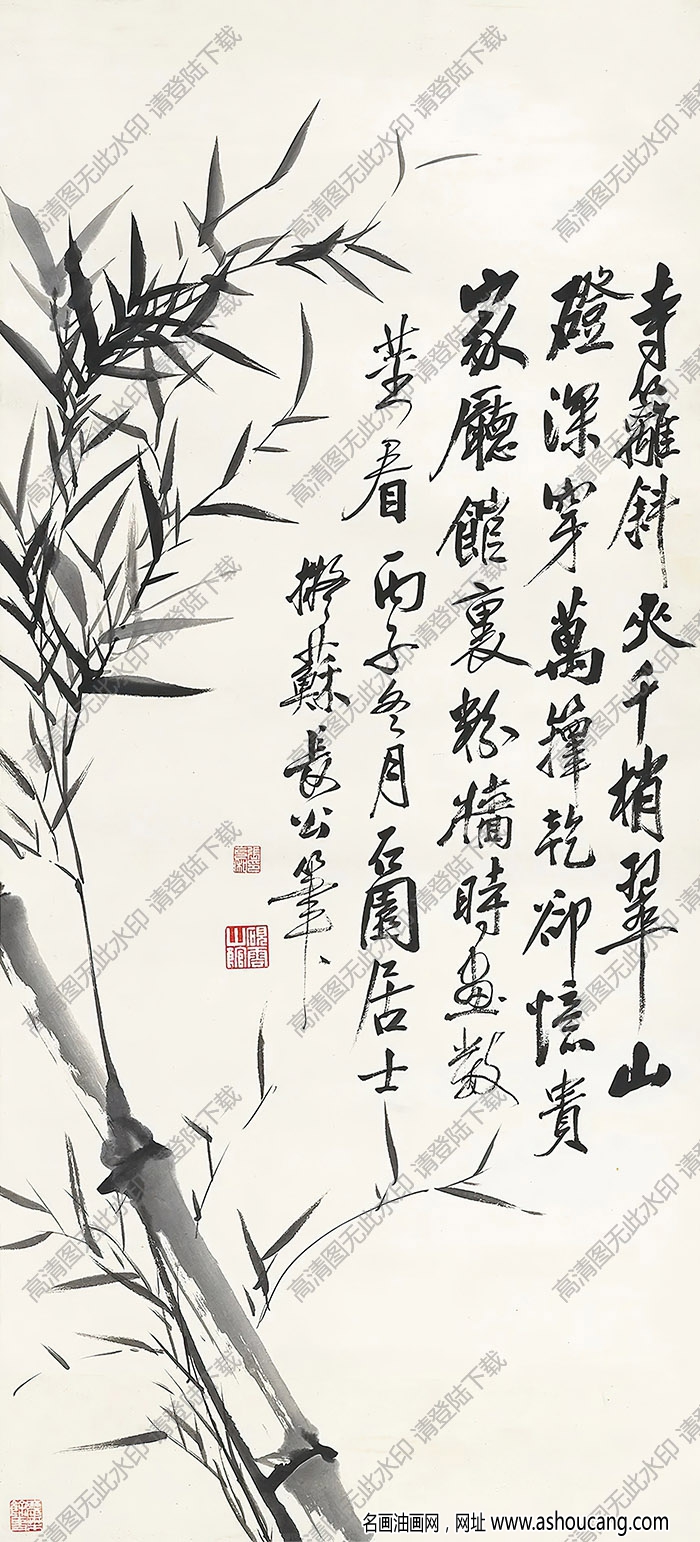 寺籬斜夾千梢翠山
磴深穿萬籜乾卻憶貴
家廳館裏粉牆時畫數
莖看 丙子冬月石園居士
擬蘇長公筆
高清图无此水印 请登陆下载
名画油画网，网址 www.ashoucang.com